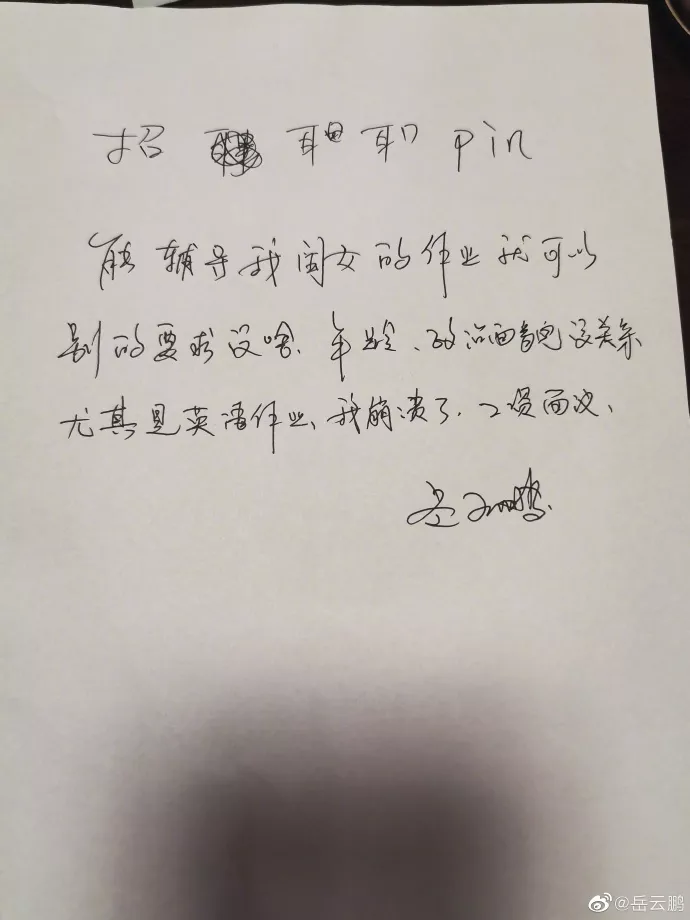 招 pin
能辅导我闺女的作业就可以
别的要求没啥、年龄、政治面貌没关系
尤其是英语作业、我崩溃了. 工资面议、
岳云鹏
@岳云鹏